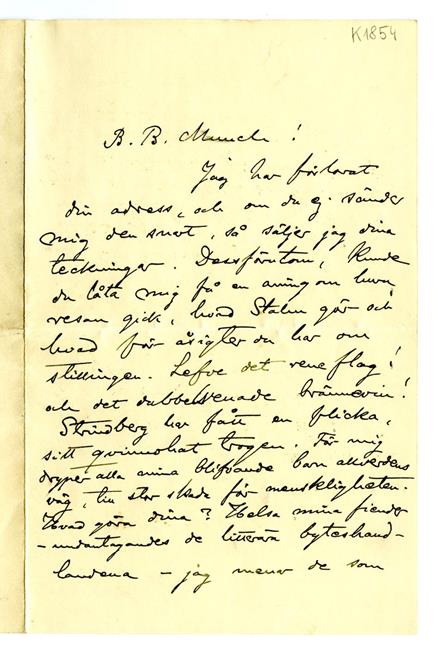 K1854
B. B. Munch!
Jag har förlorat
din adress, och om du ej sänder
mig den snart, så säljer jag dina
teckningar. Dessförutom, kunde
du låta mig få en aning om huru
resan gick, hvad Stahn gör och
hvad för åsigter du har om
stillingen. Lefve det rene flag!
och det dubbeltrenade brännevin!
Strindberg har fått en flicka,
sitt qvinnohat trogen. För mig
dryper alla mina blifvande barn all verdens
väg, till stor skada för menskligheten.
Hvad göra dina? Helsa mina fiender
– undantagandes de litterära byteshand-
landena – jag menar de som